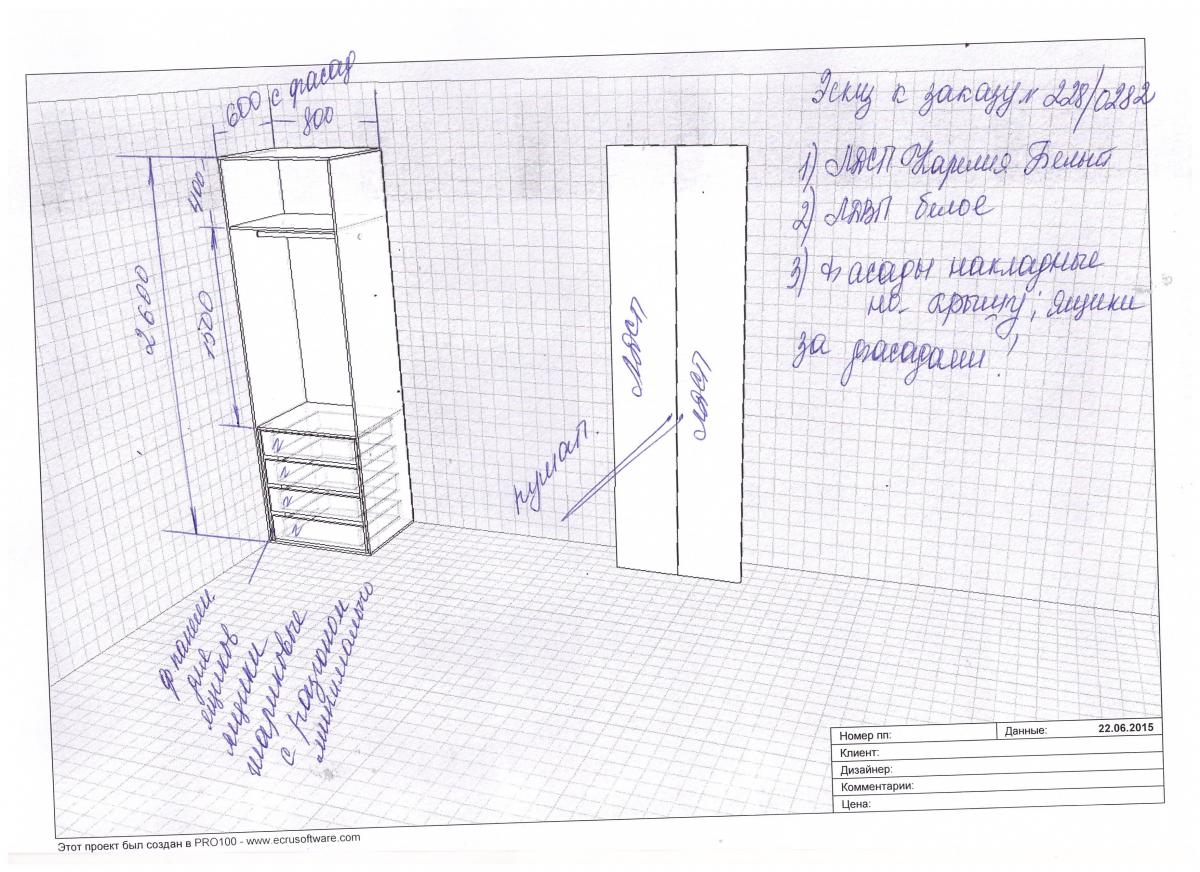 Эскиз к заказу № 228/0282
600 с фасад
800
400
2600
1200
1) ЛДСП Карелия Белый
2) ЛДВП белое
3) Фасады накладные
на крышу; ящики
за фасадами!
ЛДСП
ЛДСП
для
ящиков
ящики
шариковые
с разгоном
минимально
Номер пп:
Данные: 22.06.2015
Клиент:
Дизайнер:
Комментарии:
Цена:
Этот проект был создан в PRO100 - www.ecrusoftware.com